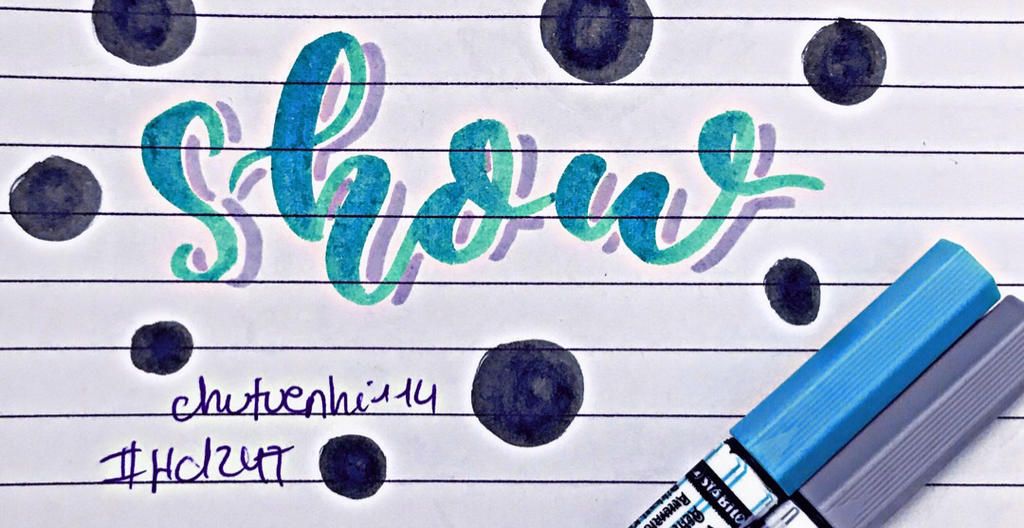 show
chutuenhi114
#Hd247